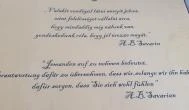 "Valakit vendégül látni annyit jelent,
mint felelősséget vállalni arra,
hogy mindaddig míg nálunk van,
gondoskodunk róla, hogy jól érezze magát."
A.B. Savarin
"Jemanden auf zu nehmen bedeutet,
Verantwortung dafür zu übernehmen, dass wir, solange wir ihn haben
dafür sorgen, dass Sie sich wohl fühlen"
A.B. Savarin